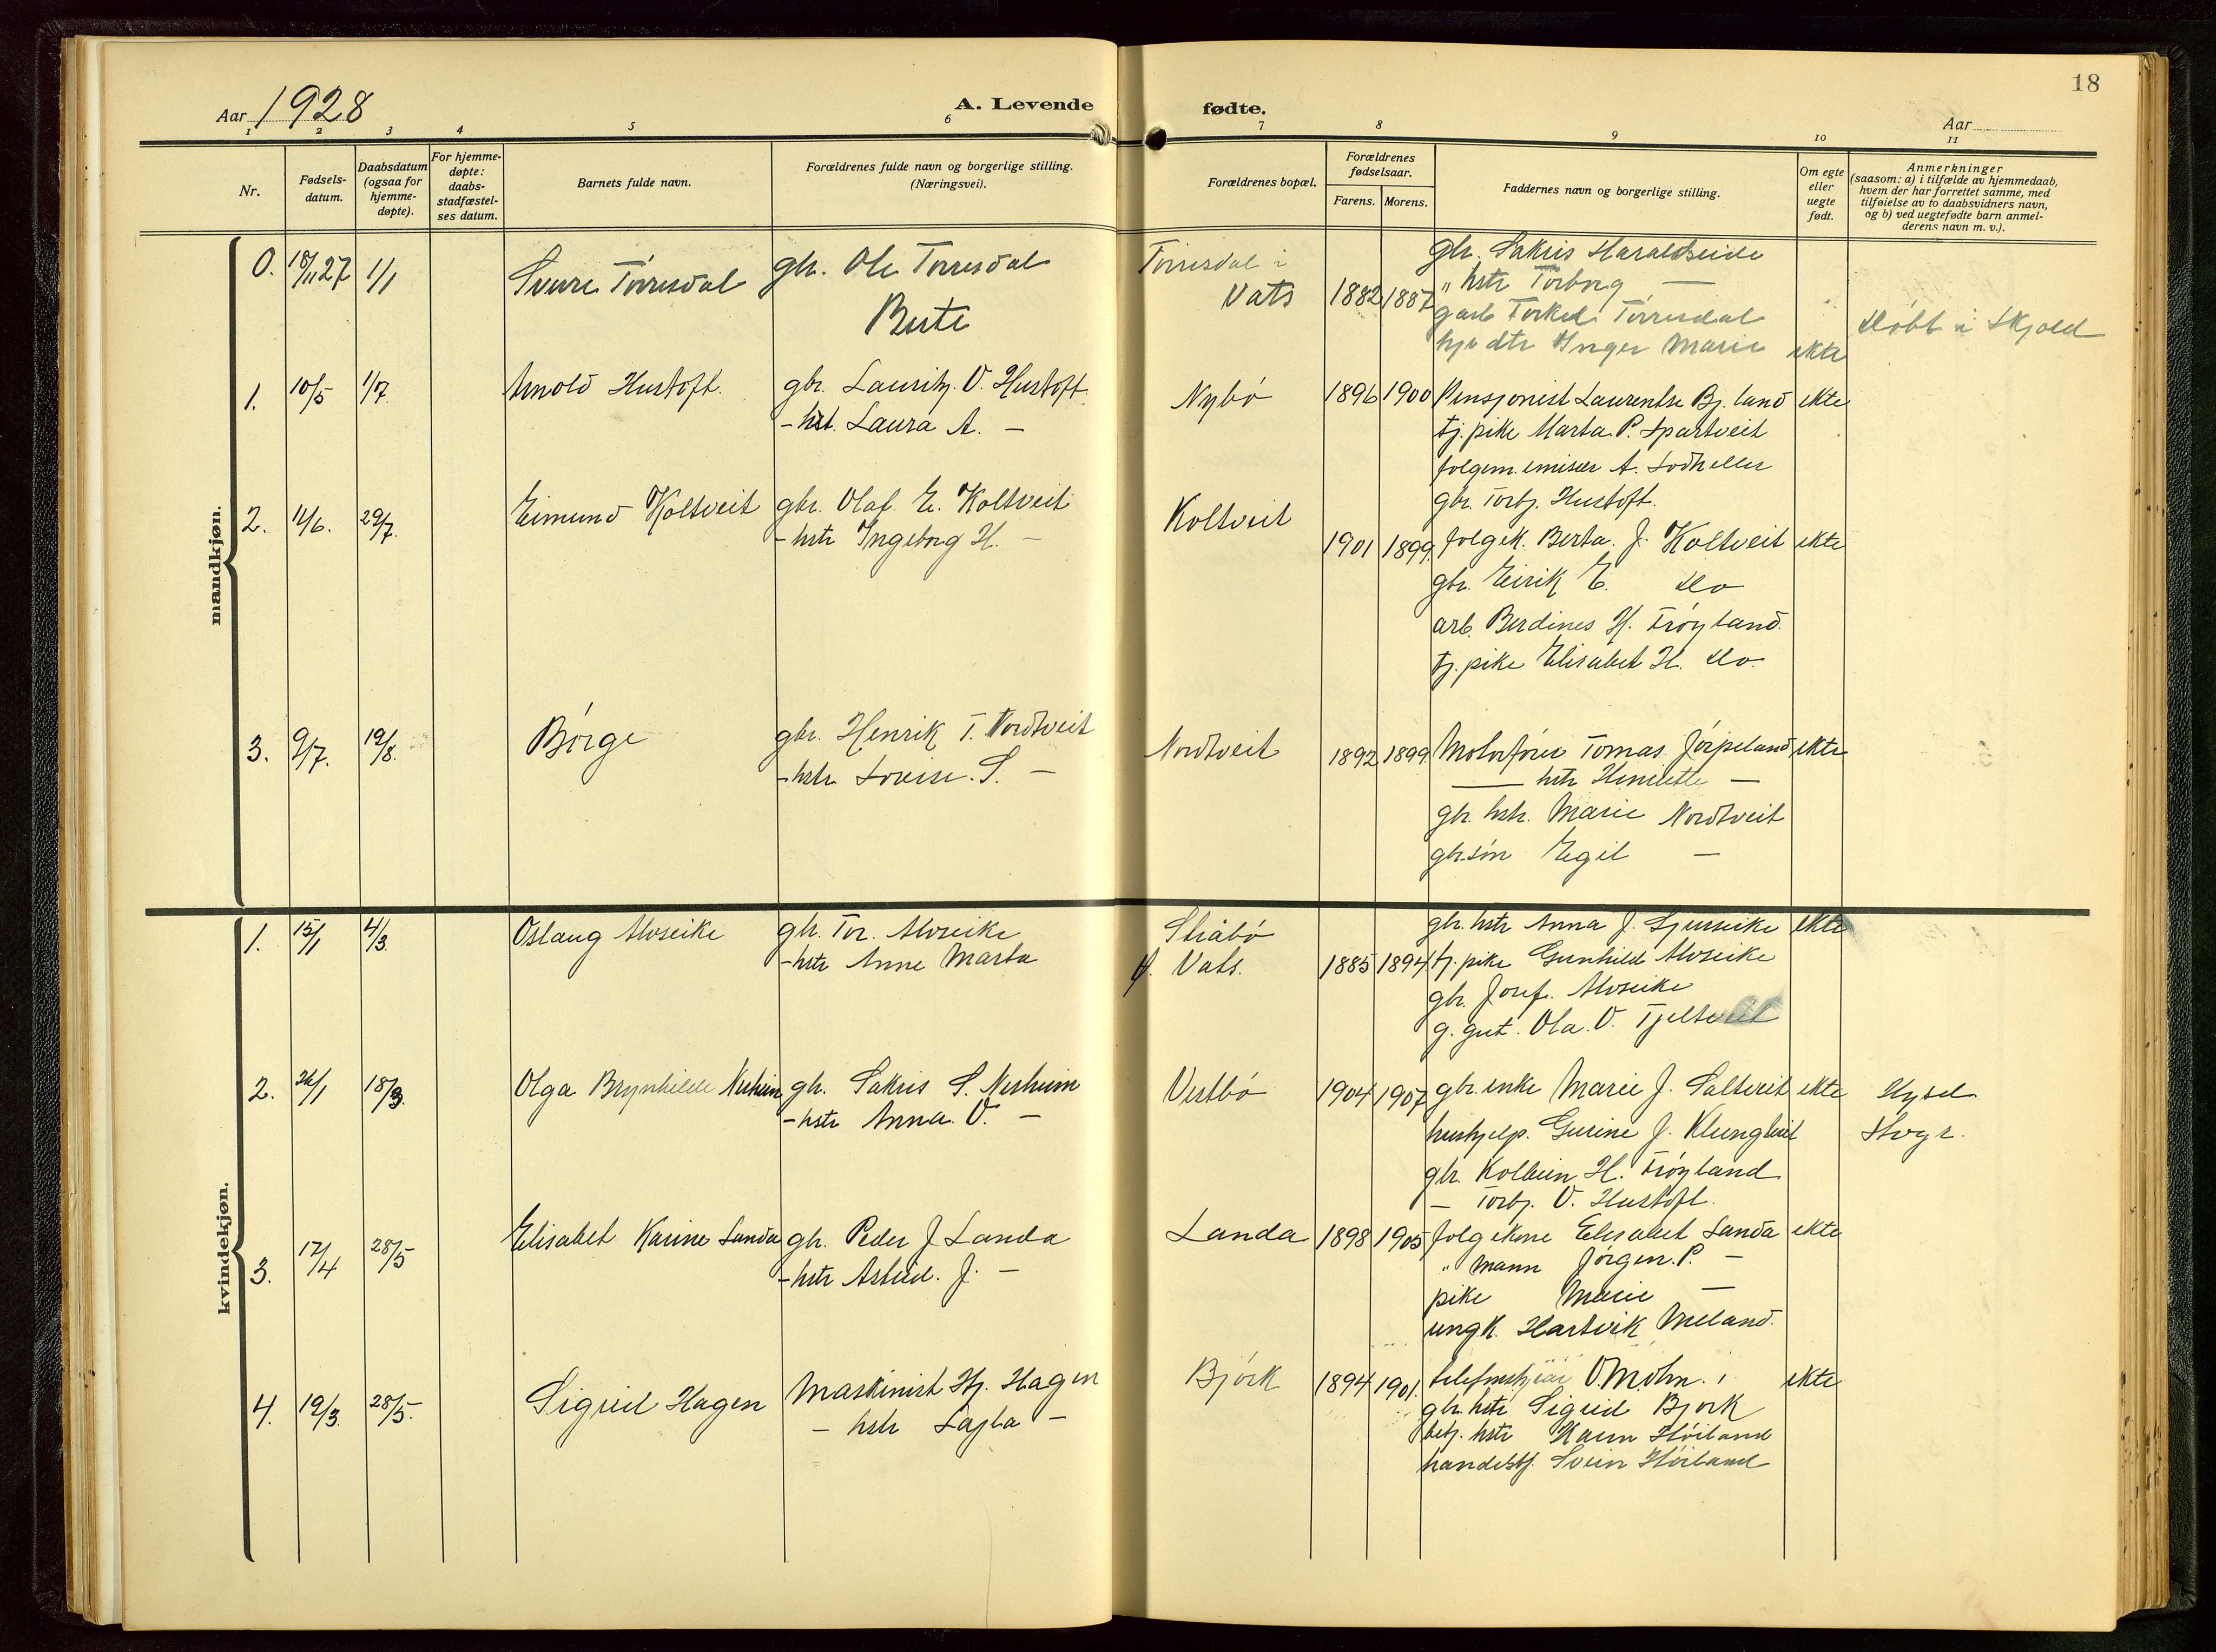 18
Aar 1928
A. Levende fødte.
Aar
1 2 3 4 5 6 7 8 9 10 11
Nr.
Fødsels-
datum.
Daabsdatum
(ogsaa for
hjemme-
døpte).
For hjemme-
døpte:
daabs-
stadfæstel-
ses datum.
Barnets fulde navn.
Forældrenes fulde navn og borgerlige stilling.
(Næringsvei).
Forældrenes bopæl.
Forældrenes
fødselsaar.
Farens. Morens.
Faddernes navn og borgerlige stilling.
Om egte
eller
uegte
født.
Anmerkninger
(saasom: a) i tilfælde av hjemmedaab,
hvem der har forrettet samme, med
tilføielse av to daabsvidners navn,
og b) ved uegtefødte barn anmel-
derens navn m. v.).
mandkjøn.
0. 18/11 27 1/1 Sverre Tørresdal gbr. Ole Tørresdal
Berte
Tørresdal i
Vats 1882 1887
gbr. Sakris Haraldseide
" hstr Torborg —
garb Torkel Tørresdal
hju dtr Inger Marie ekte
døbt i Skjold
1. 10/5 1/7 Arnold Hustoft. gbr. Lauritz. O. Hustoft.
- hst. Laura A. —
Nybø 1896 1900 Pensjonist Laurentse Bj. land ekte
tj. pike Marta P. Spartveit
folgem. emisær A. Lodheller
gbr. Torbj. Hustoft.
2. 11/6. 29/7. Eimund Koltveit gbr. Olaf E. Koltveit
- hstr Ingeborg H. —
Koltveit
1901 1899. folgek. Berta. J. Koltveit ekte
gbr. Eirik E. do
arb. Berdines H. Frøyland.
tj. pike Elisabet H. do.
3. 9/7. 19/8. Børge gbr. Henrik T. Nordtveit
- hstr. Lovise. S. —
Nordtveit 1892 1899. Motorfører Tomas Jørpeland ekte
— hstr Henriette —
gbr. hstr. Marie Nordtveit
gbr.søn Egil —
kvindekjøn.
1. 15/1 4/3 Oslaug Alvseike gbr. Tor. Alvseike
- hstr Anne Marta
Stråbø
Ø. Vats. 1885 1894
gbr. hstr Anna J. Sjurseike ekte
tj. pike Gunhild Alvseike
gbr. Josef. Alvseike
g. gut. Ola. O. Tjeltveit
2. 26/1 18/3. Olga Brynhilde Nesheim gbr. Sakris S. Nesheim
- hstr Anna. O. —
Vestbø 1904 1907 gbr. enke Marie J. Saltveit ekte
hushjelp. Gurine J. Klungtveit
gbr. Kolbein H. Frøyland
— Torbj. O. Hustoft.
3. 17/4 28/5 Elisabet Karine Landa gbr. Peder J Landa
- hstr Astrid. J. —
Landa 1898 1905 folgekone Elisabet Landa ekte
" mann Jørgen. P. —
pike Marie —
ungk. Hartvik Meland.
4. 19/3. 28/5. Sigrid Hagen Maskinist Hj. Hagen
— hstr Lajla —
Bjørk 1894 1901. O. Mohn. ekte
gbr. hstr Sigrid Bjørk
betj. hstr Karen Høiland
handelsbtj. Svein Høiland